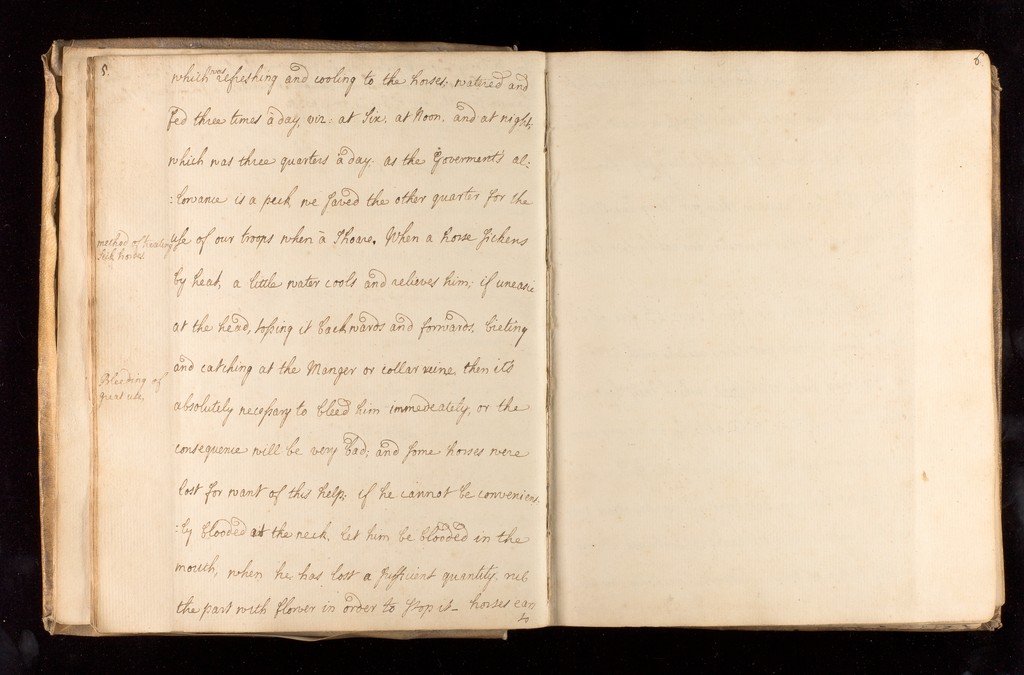 5.
which was refreshing and cooling to the horses; watered and
fed three times a day, viz: at Six, at Noon, and at night;
which was three quarters a day. as the Goverment's al:
:lowance is a peck, we saved the other quarter for the
use of our troops when a Shoare. When a horse sickens
method of treating
Sick horses.
by heat, a little water cools and relieves him; if uneasie
at the head, tossing it backwards and forwards, bieting
and catching at the Manger or collar reine, then it's
Bleeding of
great use.
absolutely necessary to bleed him immedeately, or the
consequence will be very bad; and some horses were
lost for want of this help; if he cannot be convenient:
:ly blooded at the neck, let him be blooded in the
mouth, when he has lost a sufficient quantity, rub
the part with flower in order to stop it_ horses eary
to
6.